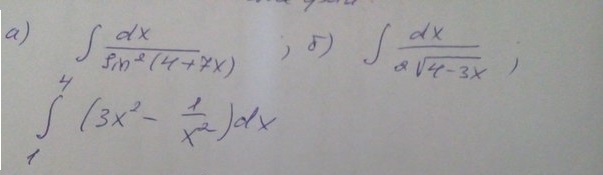 а) ∫ dx / sin²(4+7x) ; б) ∫ dx / 2√(4-3x) ;
∫₁⁴ (3x² - 1/x²) dx